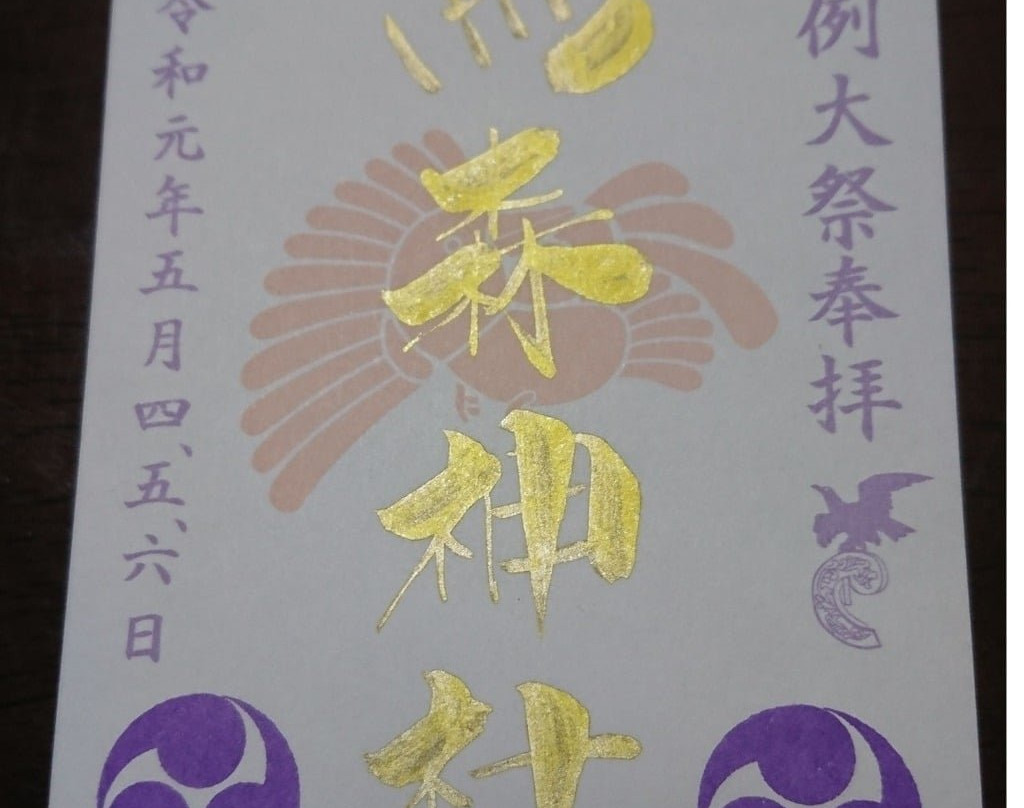 例大祭奉拝
森神社
令和元年五月四、五、六日